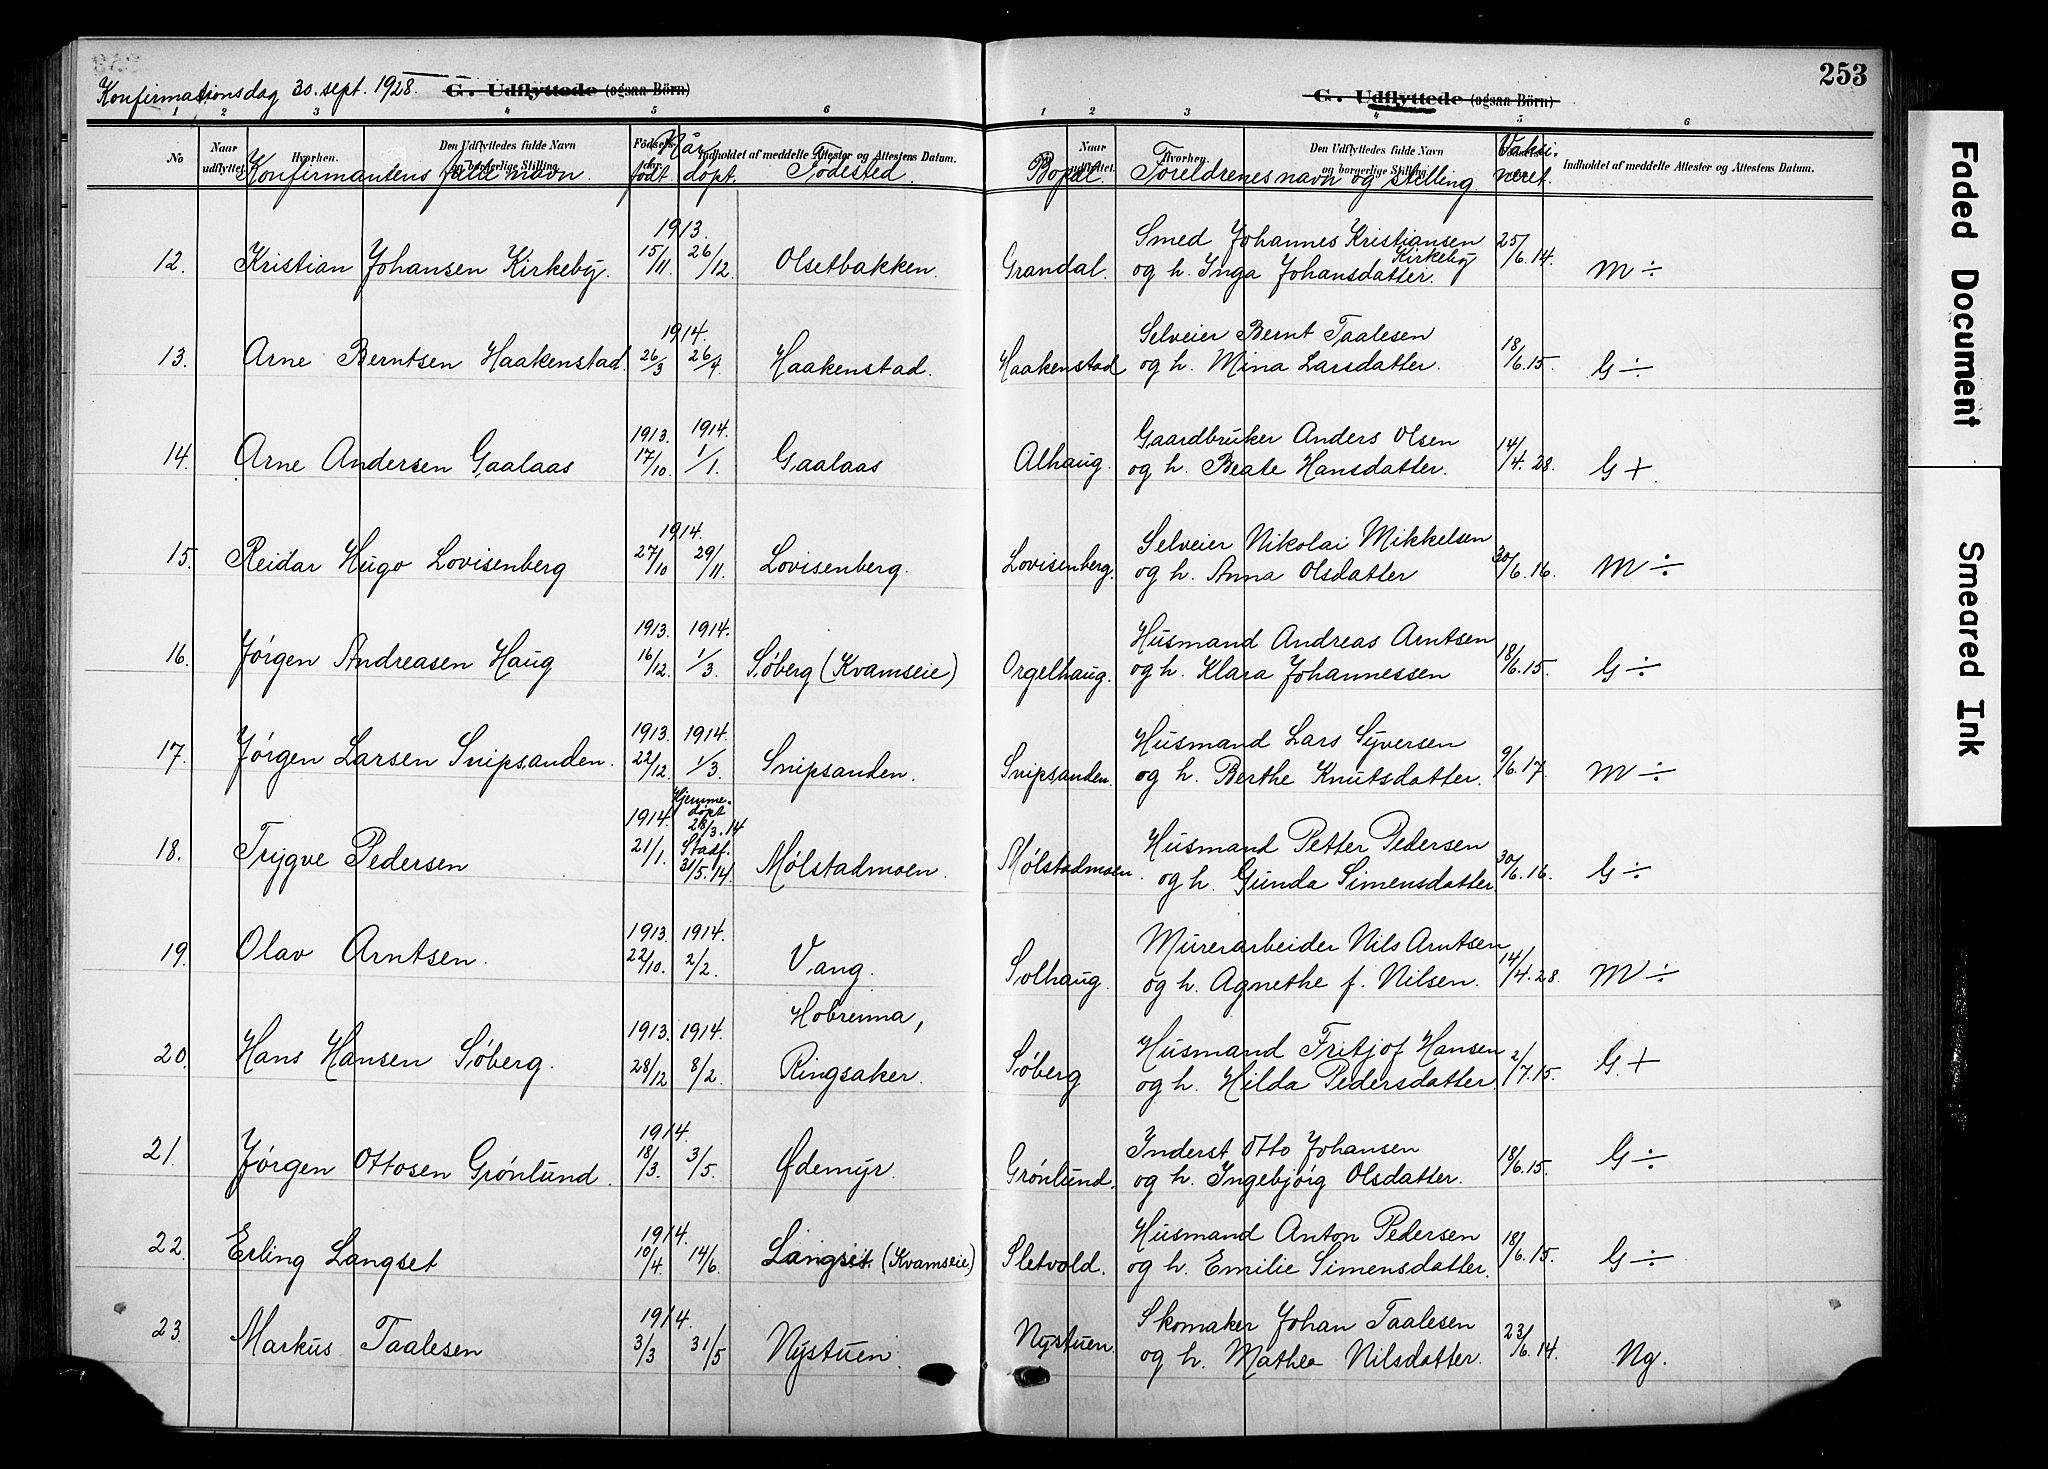 Konfirmationsdag 30. sept. 1928.
G. Udflyttede (ogsaa Börn)
G. Udflyttede (ogsaa Börn)
253
1 2 3 4 5 6 1 2 3 4 5 6
No Naar udflyttet. Hvorhen. Den Udflyttedes fulde Navn og borgerlige Stilling. Indholdet af meddelte Attester og Attestens Datum.
Naar udflyttet. Hvorhen. Den Udflyttedes fulde Navn og borgerlige Stilling. Indholdet af meddelte Attester og Attestens Datum.
Konfirmantens fulde navn. Når født. døpt. Fødested. Bopæl. Foreldrenes navn og stilling. Vaksineret.
1913. Smed Johannes Kristiansen Kirkeby
12. Kristian Johansen Kirkeby. 15/11 26/12. Olsetbakken. Grandal. og h. Inga Johansdatter. 25/6.14. M ÷
1914. Selveier Bernt Taalesen
13. Arne Berntsen Haakenstad. 26/3 26/4. Haakenstad. Haakenstad og h. Mina Larsdatter. 18/6.15. G ÷
1913. 1914. Gaardbruker Anders Olsen
14. Arne Andersen Gaalaas 17/10. 1/1. Gaalaas Alhaug. og h. Beate Hansdatter. 14/4.28. G +.
1914. Selveier Nikolai Mikkelsen
15. Reidar Hugo Lovisenberg 27/10 29/11. Lovisenberg. Lovisenberg. og h. Anna Olsdatter 30/6.16. M ÷
1913. 1914. Husmand Andreas Arntsen
16. Jørgen Andreasen Haug 16/12. 1/3. Søberg (Kvamseie) Orgelhaug. og h. Klara Johannessen 18/6.15. G ÷
1913. 1914. Husmand Lars Syversen
17. Jørgen Larsen Snipsanden. 22/12. 1/3. Snipsanden. Snipsanden. og h. Berthe Knutsdatter. 9/6.17. M ÷
1914. Hjemmedøpt 28/3.14 Husmand Petter Pedersen
18. Trygve Pedersen 21/1. Stadf. 31/5.14. Mølstadmoen. Mølstadmoen. og h. Gunda Simensdatter 30/6.16. G ÷
1913. 1914. Murerarbeider Nils Arntsen
19. Olav Arntsen. 22/10. 2/2. Vang. Solhaug. og h. Agnethe f. Nilsen. 14/4.28. M ÷
1913. 1914. Hobrenna, Husmand Fritjof Hansen
20. Hans Hansen Søberg. 28/12 8/2. Ringsaker. Søberg og h. Hilda Pedersdatter 2/7.15. G +
1914. Inderst Otto Johansen
21. Jørgen Ottosen Grønlund. 18/3. 3/5. Ødemyr. Grønlund. og h. Ingebjørg Olsdatter. 18/6.15. G ÷
1914. Husmand Anton Pedersen
22. Erling Langset 10/4. 14/6. Langset (Kvamseie) Sletvold. og h. Emilie Simensdatter. 18/6.15. G ÷
1914. Skomaker Johan Taalesen
23. Markus Taalesen 3/3 31/5 Nystuen. Nystuen. og h. Mathea Nilsdatter. 23/6.14. Ng.
Faded Document
Smeared Ink